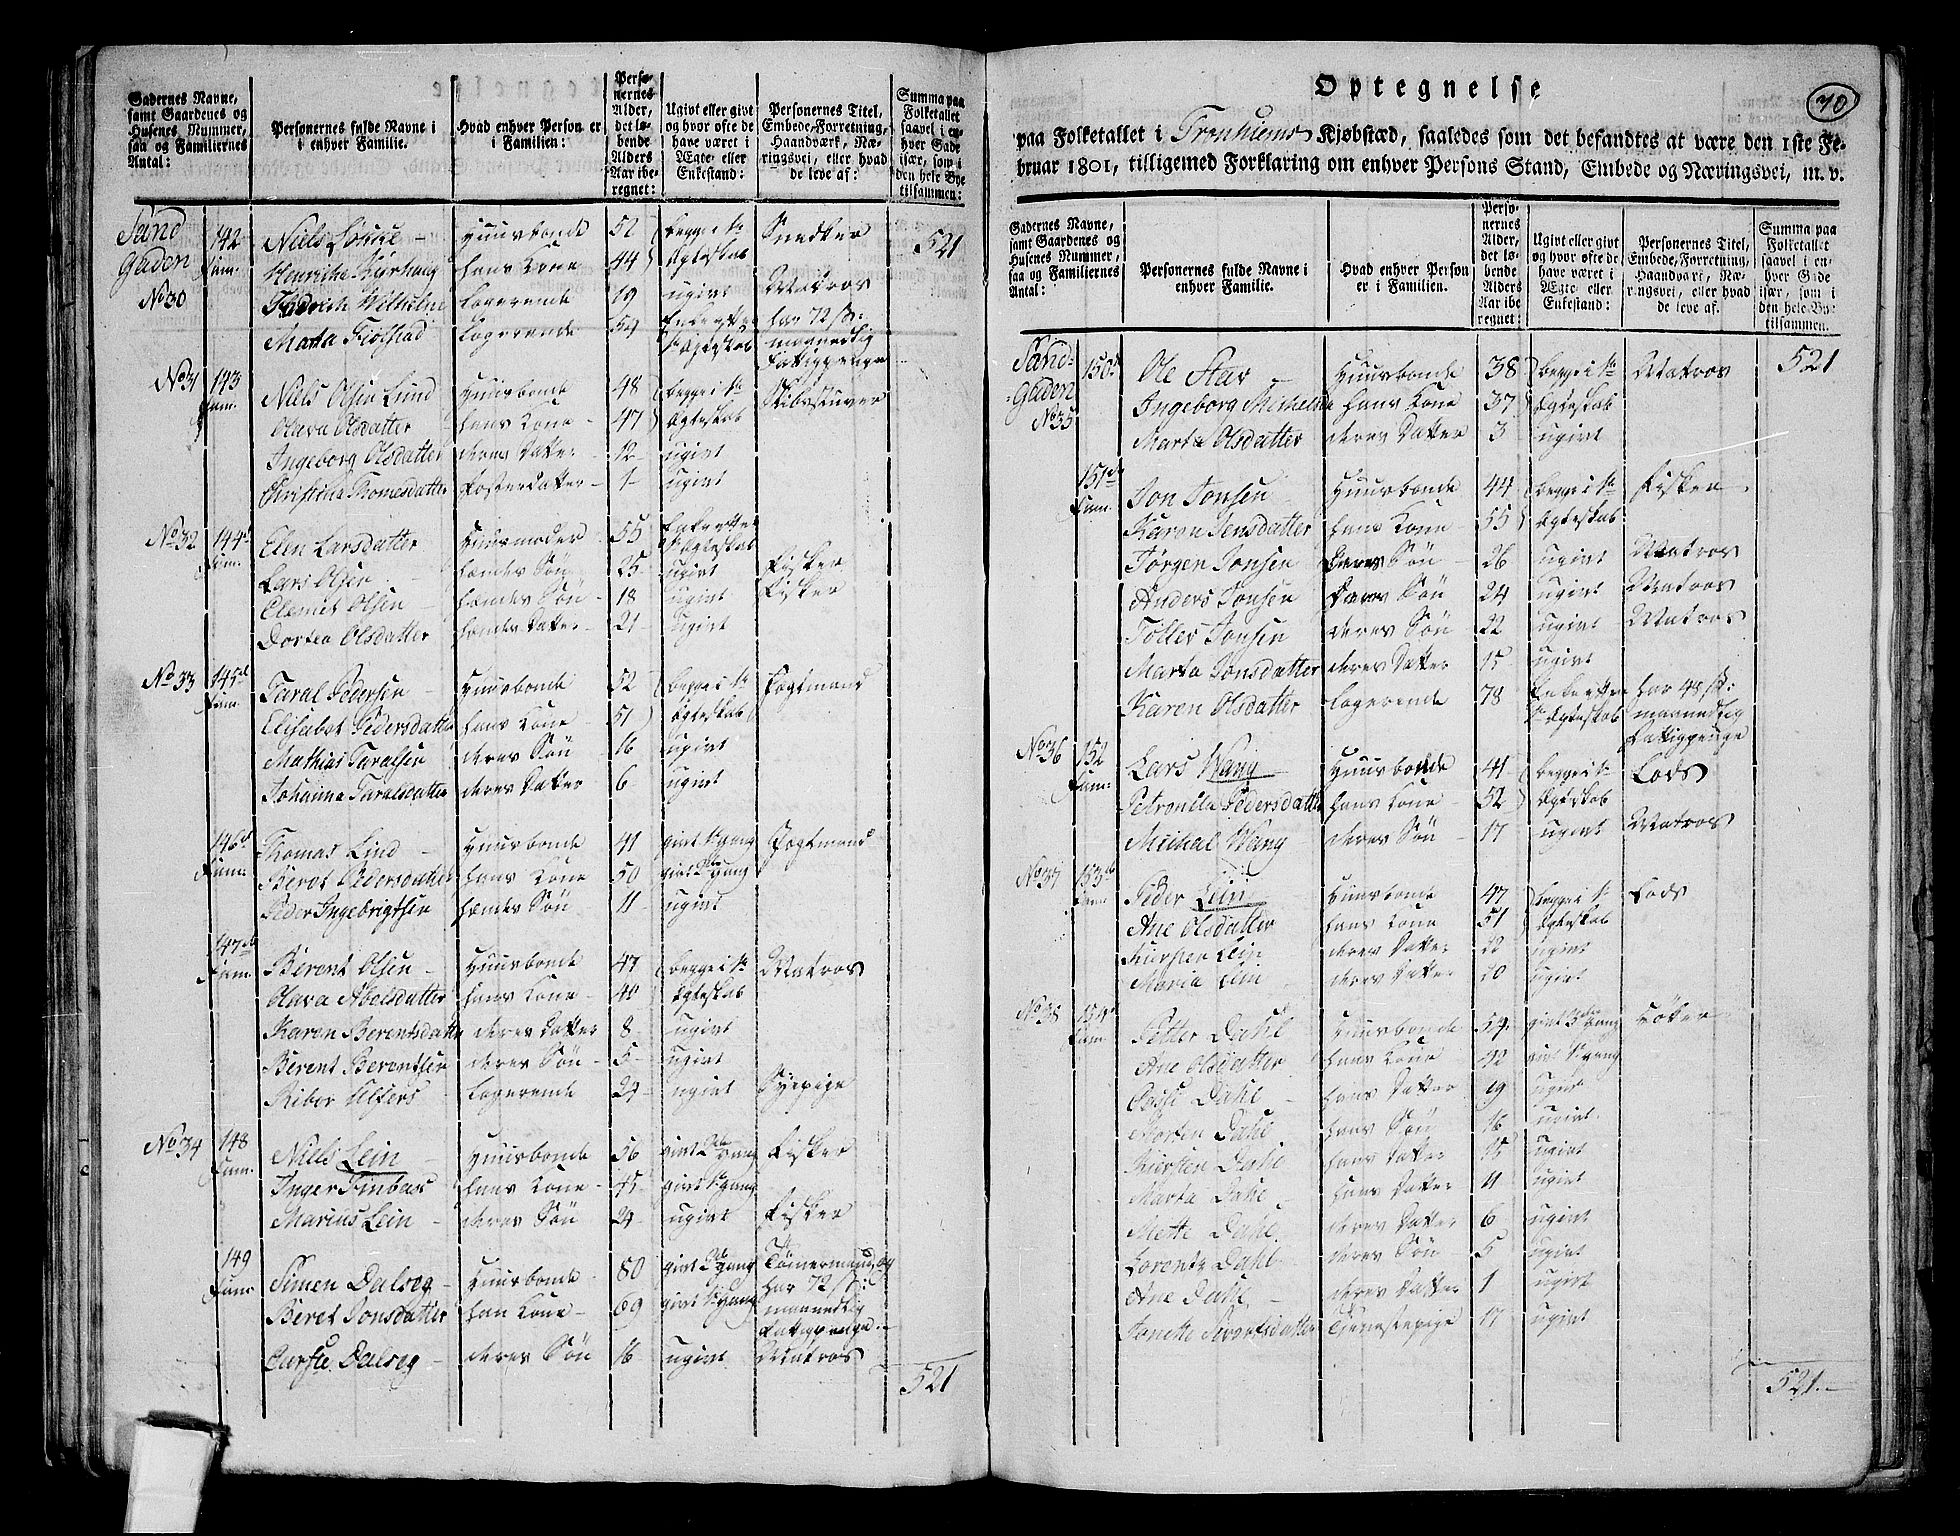 Gadernes Navne,
samt Gaardenes og
Husenes Nummer,
saa og Familiernes
Antal:
Personernes fulde Navne i
enhver Familie.
Hvad enhver Person er
i Familien:
Perso-
nernes
Alder,
det lø-
bende
Alders
Aar ibe-
regnet:
Ugivt eller givt
og hvor ofte de
have været i
Ægte- eller
Enkestand:
Personernes Titel,
Embede, Forretning,
Haandværk, Næ-
ringsvei, eller hvad
de leve af:
Summa paa
Folketallet
saavel i en-
hver Gade
især, som i
den hele Bye
tilsammen:
Sand Gaden No 30 142 Fam. Niels Huusbonde 52 begge i 1ste Snedker 521
Henricha hans Kone 44 Ægteskab
Logerende 19 ugivt Matros
Marta Logerende 54 Enke efter har 72 s:
1ste Ægteskab maanedlig
Fattigpenge
No 31 143 Fam. Niels Olsen Lund Huusbonde 48 begge i 1ste Skibsstuver
Olava Olsdatter hans Kone 47 Ægteskab
Ingeborg Olsdatter deres Datter 12 ugivt
Christina Thomesdatter Fosterdatter 1 ugivt
No 32 144 Fam. Elen Larsdatter Huusmoder 55 Enke efter
1ste Ægteskab
Lars Olsen hendes Søn 25 ugivt Fisker
Clemet Olsen hendes Søn 18 ugivt Fisker
Dortea Olsdatter hendes Datter 21 ugivt
No 33 145 Fam. Taral Pedersen Huusbonde 52 begge i 1ste Jogtmand
Elisabet Pedersdatter hans Kone 51 Ægteskab
Mathias Taralsen deres Søn 16 ugivt
Johanna Taralsdatter deres Datter 6 ugivt
146 Fam. Thomas Lind Huusbonde 41 givt 1ste gang Jogtmand
Beret Pedersdatter hans Kone 50 givt 2den gang
Peder Ingebrigtsen hendes Søn 11 ugivt
147 Fam. Berent Olsen Huusbonde 47 begge i 1ste Matros
Olava Abelsdatter hans Kone 40 Ægteskab
Karen Berentsdatter deres Datter 8 ugivt
Berent Berentsen deres Søn 5 ugivt
Logerende 24 ugivt Syepige
No 34 148 Fam. Niels Lein Huusbonde 56 givt 2den gang Fisker
Inger hans Kone 45 givt 1ste gang
Marius Lein deres Søn 24 ugivt Fisker
149 Fam. Simen Dalseg Huusbonde 80 givt 2den gang Tømermand og
har 72 s:
Beret Jonsdatter han Kone 69 givt 1ste gang maanedlig
Fattigpenge
Dalseg deres Søn 16 ugivt Matros
521
70
Optegnelse
paa Folketallet i Tronhiems Kjøbstæd, saaledes som det befandtes at være den 1ste Fe-
bruar 1801, tilligemed Forklaring om enhver Persons Stand, Embede og Næringsvei, m. v.
Gadernes Navne,
samt Gaardenes og
Husenes Nummer,
saa og Familiernes
Antal:
Personernes fulde Navne i
enhver Familie.
Hvad enhver Person
er i Familien.
Perso-
nernes
Alder,
det lø-
bende
Alders
Aar ibe-
regnet:
Ugivt eller givt
og hvor ofte de
have været i
Ægte- eller
Enkestand:
Personernes Titel,
Embede, Forretning,
Haandværk, Næ-
ringsvei, eller hvad
de leve af.
Summa paa
Folketallet
saavel i en-
hver Gade
især, som i
den hele Bye
tilsammen.
Sand-Gaden No 35 150 Ole Huusbonde 38 begge i 1ste Matros 521
Ingeborg hans Kone 37 Ægteskab
Marta Olsdatter deres Datter 3 ugivt
151 Fam. Jon Jonsen Huusbonde 44 begge i 1ste Fisker
Karen Jensdatter hans Kone 55 Ægteskab
Jørgen Jonsen deres Søn 26 ugivt Matros
Anders Jonsen deres Søn 24 ugivt Matros
Toller Jonsen deres Søn 22 ugivt Matros
Marta Jonsdatter deres Datter 15 ugivt
Karen Olsdatter Logerende 78 Enke efter har 48 s:
1ste Ægteskab maanedlig
Fattigpenge
No 36 152 Fam. Lars Wang Huusbonde 41 begge i 1ste Lods
Petronilla Pedersdatter hans Kone 52 Ægteskab
Michal Wang deres Søn 17 ugivt Matros
No 37 153 Fam. Peder Lein Huusbonde 47 begge i 1ste Lods
Ane Olsdatter hans Kone 51 Ægteskab
Kirsten Lein deres Datter 22 ugivt
Maria Lein deres Datter 20 ugivt
No 38 154 Fam. Petter Dahl Huusbonde 54 givt 3die gang
Ane Olsdatter hans Kone 42 givt 1ste gang
Dahl hans Datter 19 ugivt
Morten Dahl hans Søn 16 ugivt
Kirsten Dahl hans Datter 15 ugivt
Marta Dahl hans Datter 11 ugivt
Mette Dahl deres Datter 6 ugivt
Lorentz Dahl deres Søn 5 ugivt
Ane Dahl deres Datter 1 ugivt
Tjenestepige 17 ugivt
521